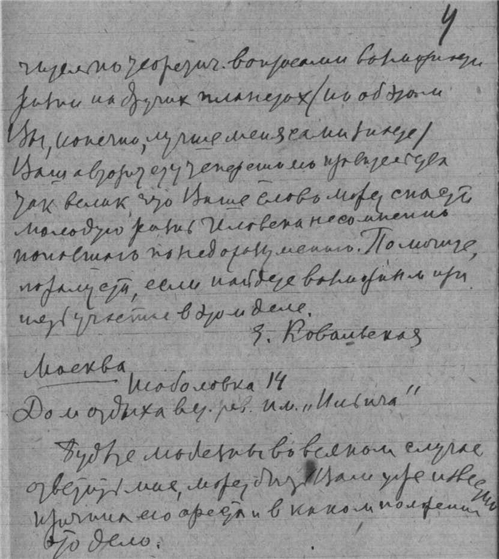 4
чительно теоретич. вопросами возможности
жизни на других планетах (но об этом
Вы, конечно, лучше меня сами знаете)
Ваш авторитет
так велик, что Ваше слово может спасти
молодую жизнь человека несомненно
попавшего по недоразумению. Помогите,
пожалуйста, если найдете возможным при
нять участие в этом деле.
Е. Ковальская
Москва
Шаболовка 14
Дом отдыха вет. рев. им. „Ильича"
Будьте любезны во всяком случае
ответить мне, может быть Вам уже известны
причина его ареста и в каком положении
это дело.